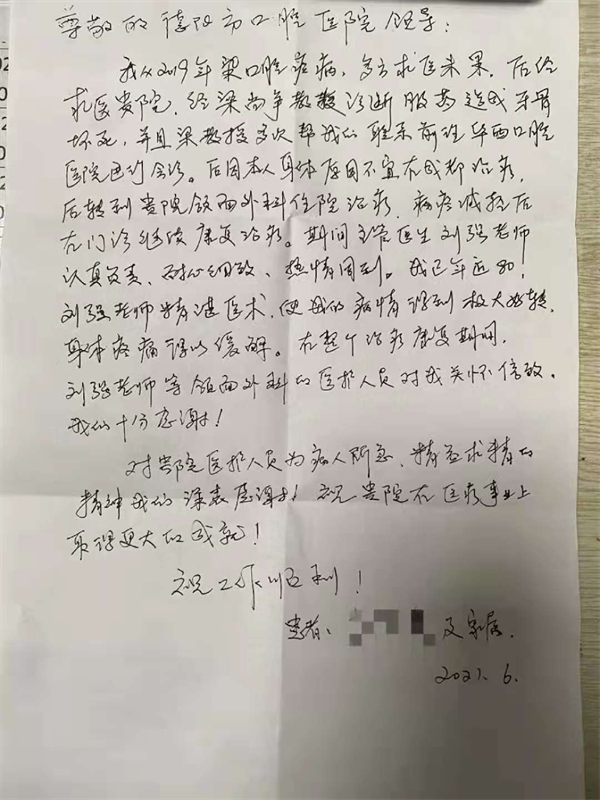 尊敬的德阳市口腔医院领导：
我从2019年染口腔疾病，多方求医未果，后经
求医贵院，经梁尚争教授诊断服药造成牙骨
坏死，并且梁教授多次帮我们联系前往华西口腔
医院进行会诊。后因本人身体原因不宜在成都治疗，
后转到贵院颌面外科住院治疗，病疼减轻后
在门诊继续康复治疗。期间主管医生刘强老师
认真负责、耐心细致、热情周到。我已年近80，
刘强老师精湛医术，使我的病情得到极大好转，
身体疼痛得以缓解。在整个治疗康复期间，
刘强老师等颌面外科的医护人员对我关怀倍致，
我们十分感谢！
对贵院医护人员为病人所急、精益求精的
精神我们深表感谢！祝贵院在医疗事业上
取得更大的成就！
祝工作顺利！
患者： 及家属.
2021.6.